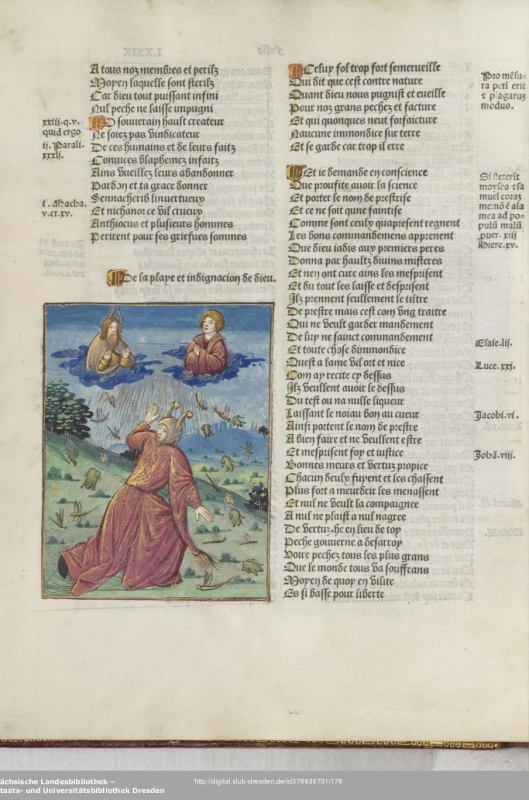 A tous noz membres et perilz
Moyen laquelle sont sterilz
Car dieu tout puissant infini
Nul peche ne laisse impugni
O souverain hault createur
Ne soiez pas vindicateur
De ces humains et de leurs faitz
Convices blasphemez infaitz
Ains vueillez leurs abandonner
Pardon et ta grace donner
Sennacherib
Et nichanor ce vil crueux
Anthiocus et plusieurs hommes
Perirent pour ses griefues sommes
De la playe et indignacion de dieu.
xxiii.q.v.
quid ergo
ii. Parali.
xxxii.
i. Macha.
v. et.xv.
Icelup fol trop fort semerueille
Qui dit que cest contre nature
Quant dieu nous pugnist et eueille
Pour noz grans pechez et facture
Et qui quonques neut forfaicture
Naucune immondice sur terre
Et se garde car trop il erre
Et ie demande en conscience
Que proufite auoir la science
Et porter le nom de prestrise
Et ce ne soit qune faintise
Comme font ceulx quapresent regnent
Les bons commandemens apprenent
Que dieu iadis aux premiers peres
Donna par haultz diuins misteres
Et nen ont cure ains les mesprisent
Et du tout les laisse et desprisent
Ilz prennent seullement le tiltre
De prestre mais cest com vng traitre
Qui ne veult garder mandement
De luy ne sainct commandement
Et toute chose dimmondice
Quest a lame vil ort et nice
Com ay recite cy dessus
Ilz veullent auoir le dessus
Du test ou na nulle liqueur
Laissant le noiau bon au cueur
Ainsi portent le nom de prestre
A bien faire et ne veullent estre
Et mesprisent foy et iustice
Bonnes meurs et vertuz propice
Chacun deulx fuyent et les chassent
Plus fort a meurdrir les menassent
Et nul ne veult la compaignee
A nul ne plaist a nul nagree
De vertuz.he en lieu de toy
Peche gouuerne a desarroy
Voire pechez tous les plus grans
Que le monde tous va souffrans
Moyen de quoy en vilite
Es si basse pour liberte
Pro mesu-
ra peti erit
et plagarum
modus.
Si steterit
moyses et sa
muel coram
me nõ ẽ aīa
mea ad po-
pulũ malũ
puer. xiii
Hiere.xv.
Esaie.lii.
Luce.xxi.
Jacobi.vi.
Johã.viii.
ächsische Landesbibliothek –
taats- und Universitätsbibliothek Dresden
http://digital.slub-dresden.de/id378636731/178